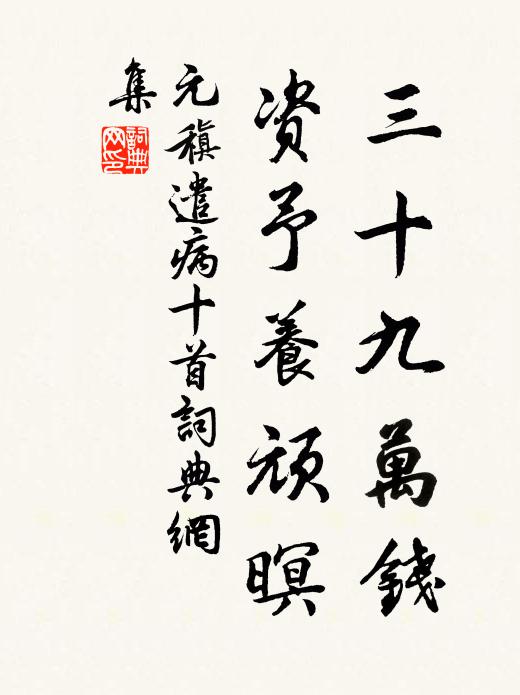 三十九萬錢
資予養頑暝
元稹遣病十首詞典網
集
詞典
网印